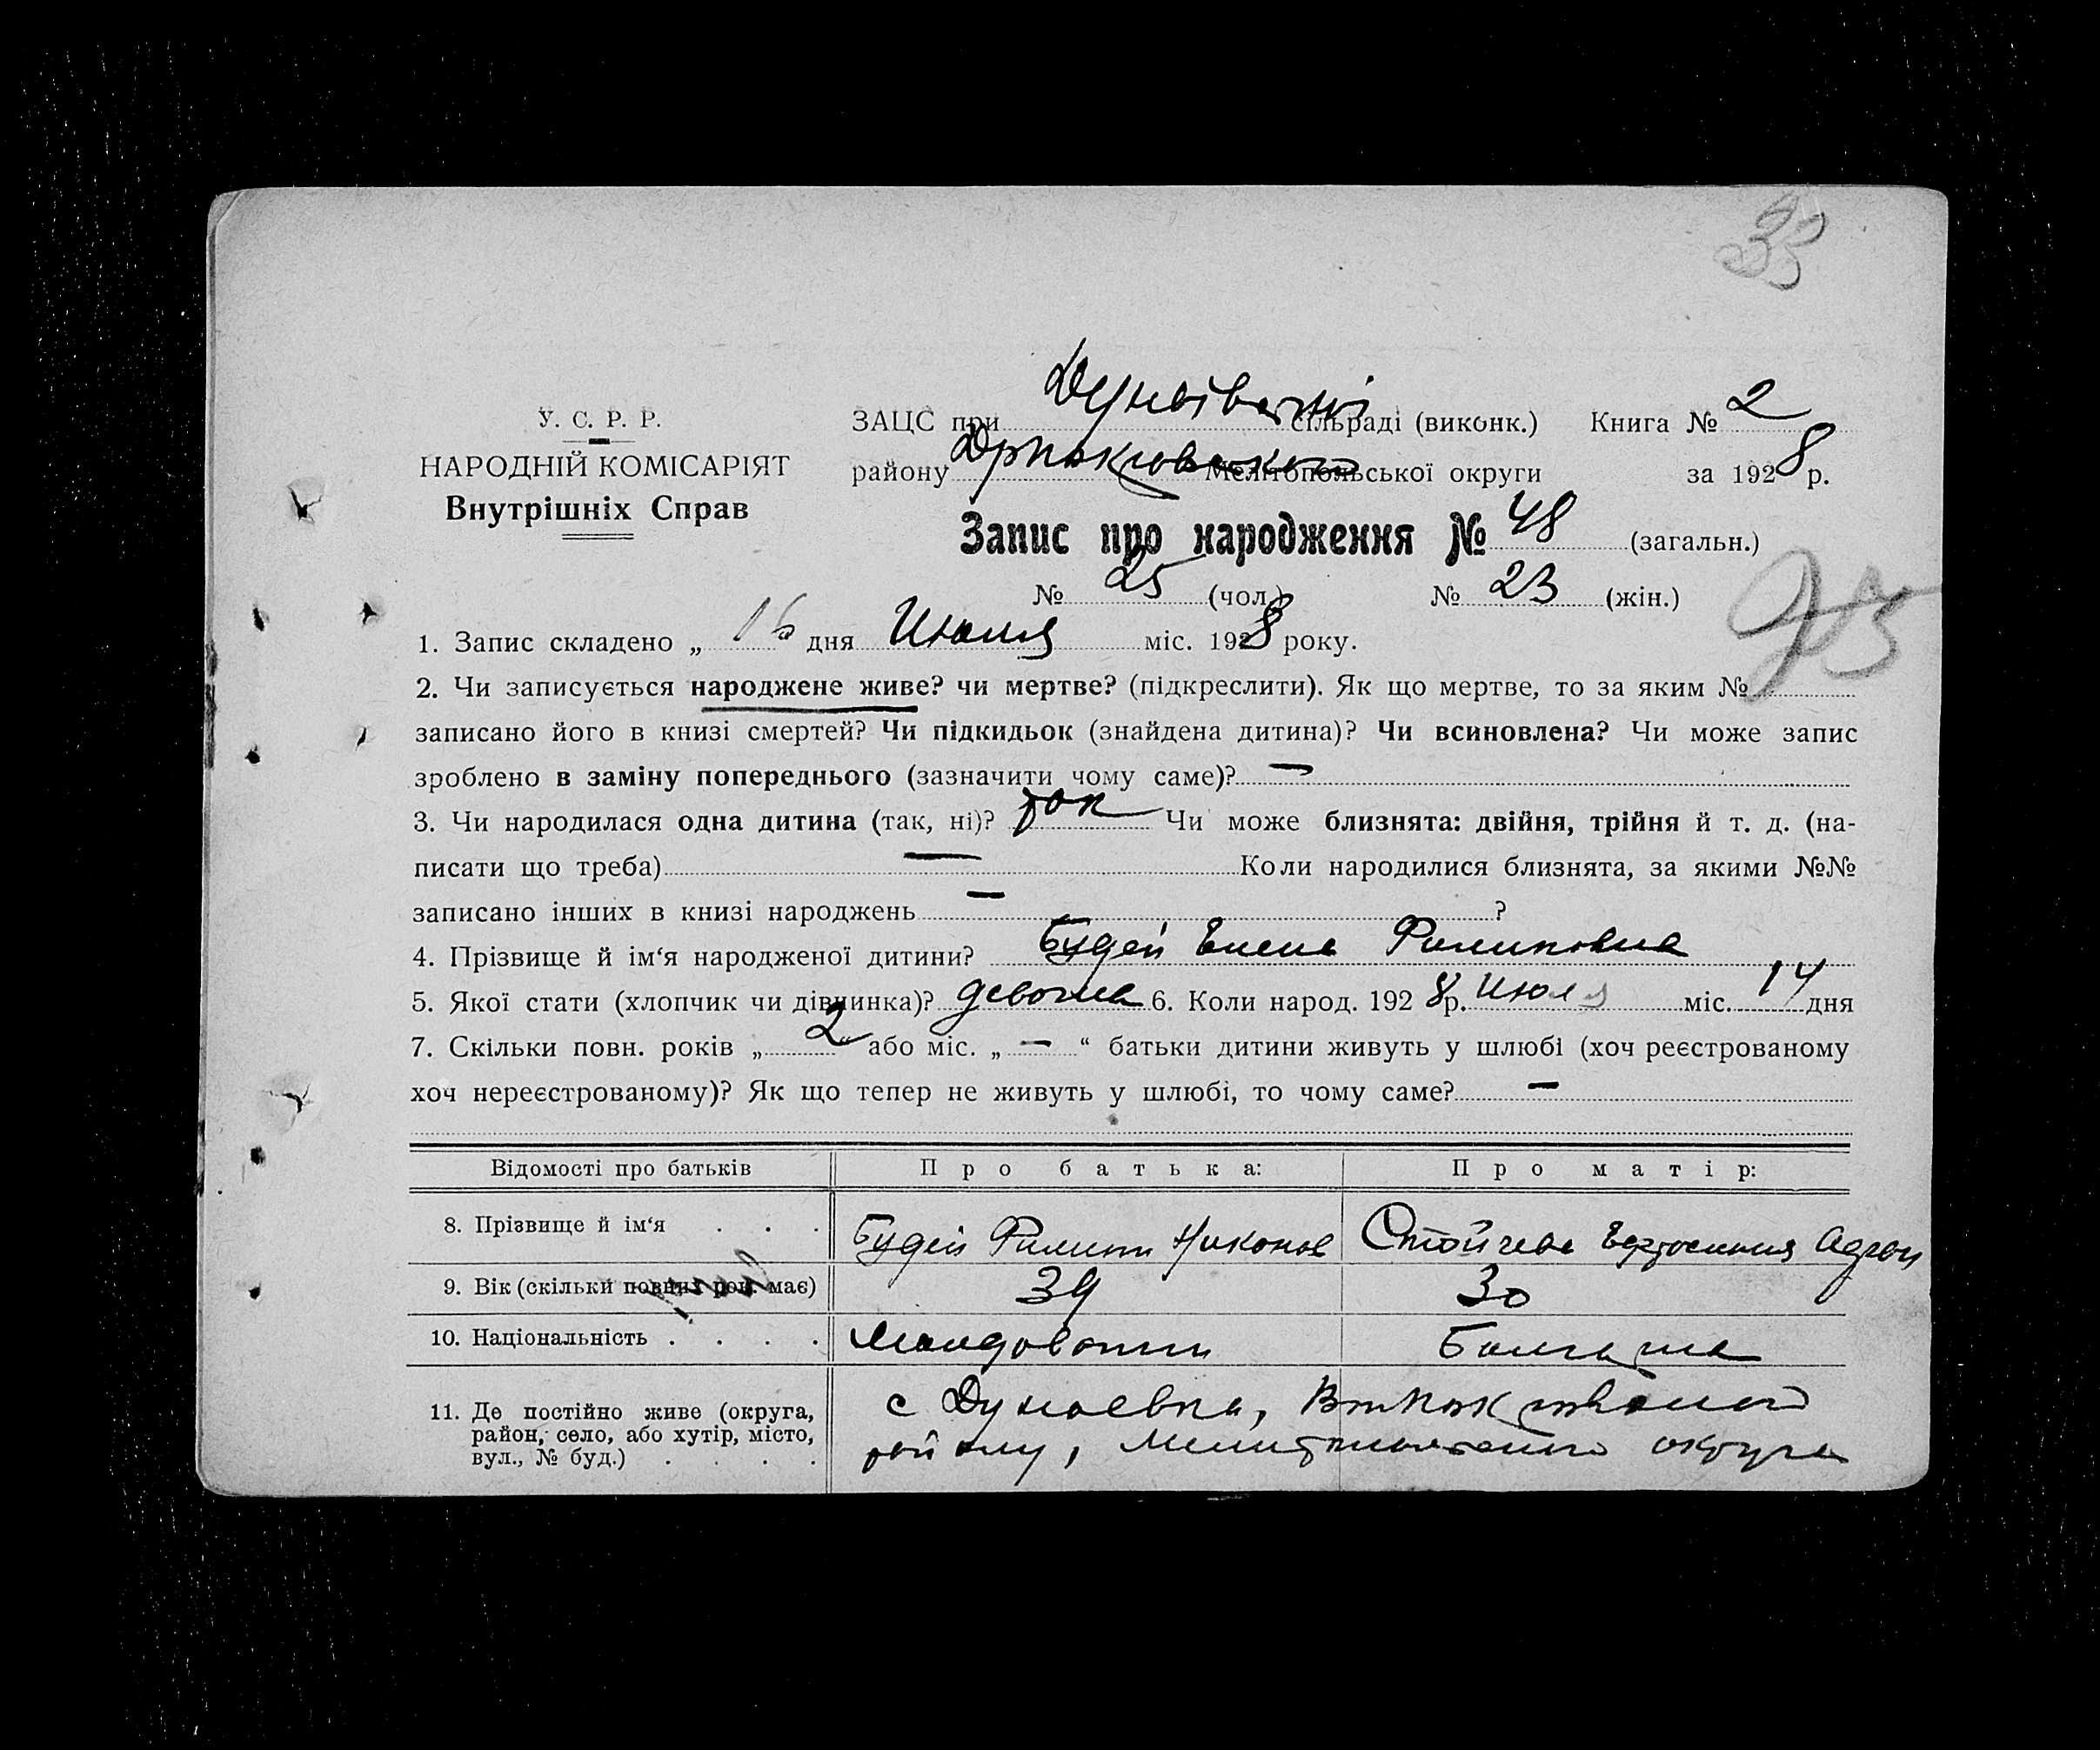 33
У. С. Р. Р.
НАРОДНІЙ КОМІСАРІЯТ
Внутрішніх Справ
ЗАЦС при сільраді (виконк.) Книга № 2
району Мелітопольської округи за 1928 р.
Запис про народження № 48 (загальн.)
№ 25 (чол.) № 23 (жін.)
1. Запис складено „ 16 дня Июля міс. 1928 року.
2. Чи записується народжене живе? чи мертве? (підкреслити). Як що мертве, то за яким №
записано його в книзі смертей? Чи підкидьок (знайдена дитина)? Чи всиновлена? Чи може запис
зроблено в заміну попереднього (зазначити чому саме)? —
3. Чи народилася одна дитина (так, ні)? так Чи може близнята: двійня, трійня й т. д. (на-
писати що треба) — Коли народилися близнята, за якими №№
записано інших в книзі народжень — ?
4. Прізвище й ім‘я народженої дитини? Будей Елена Филиповна
5. Якої стати (хлопчик чи дівчинка)? 6. Коли народ. 1928 р. Июля міс. 14 дня
7. Скільки повн. років „ 2 “ або міс. „ — “ батьки дитини живуть у шлюбі (хоч реєстрованому
хоч нереєстрованому)? Як що тепер не живуть у шлюбі, то чому саме? —
Відомості про батьків Про батька: Про матір:
8. Прізвище й ім‘я . . . Будей Филипп Никонов Стойчева
9. Вік (скільки повних рок. має) 39 30
10. Національність . . . . Молдован Болгарка
11. Де постійно живе (округа, с Дунаевка,
район, село, або хутір, місто, району, Мелитопольского округа
вул., № буд.) . . . .